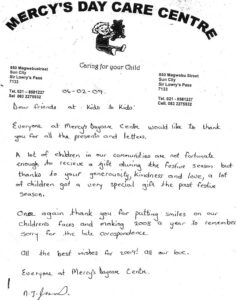 MERCY'S DAY CARE CENTRE
Caring for your Child
650 Magwebustreet
Sun City
Sir Lowry's Pass
7133
Tel. 021 - 8581227
Sel 083 2275532
650 Magwebu Street
Sun City
Sir Lowry's Pass
7133
Tel. 021 - 8581227
Cell. 083 2275532
04-02-09
Dear friends at Kids to Kids.
Everyone at Mercy's Daycare Centre would like to thank
you for all the presents and letters.
A lot of children in our communities are not fortunate
enough to recieve a gift during the festive season but
thanks to your generousity, kindness and love, a lot
of children got a very special gift the past festive
season.
Once again thank you for putting smiles on our
children's faces and making 2008 a year to remember
sorry for the late correspondence.
All the best wishes for 2009! all our love.
Everyone at Mercy's Daycare Centre.